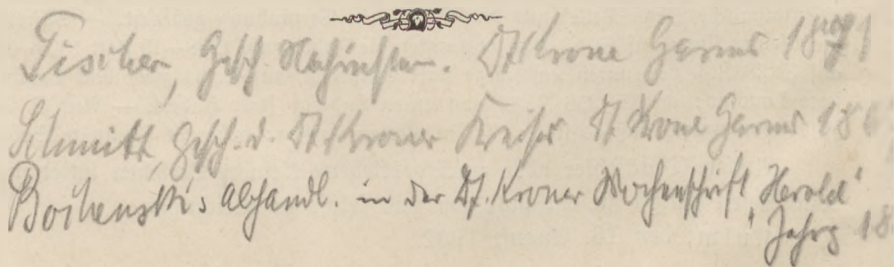 Fischer, Gesch. Nachrichten. Dt Krone Garms 1871
Schmitt, Gesch. d. Dt Kroner Kreises Dt Krone Garms 186
Bochenski's Abhandl. in der Dt. Kroner Wochenschrift „Herold"
Jahrg 18